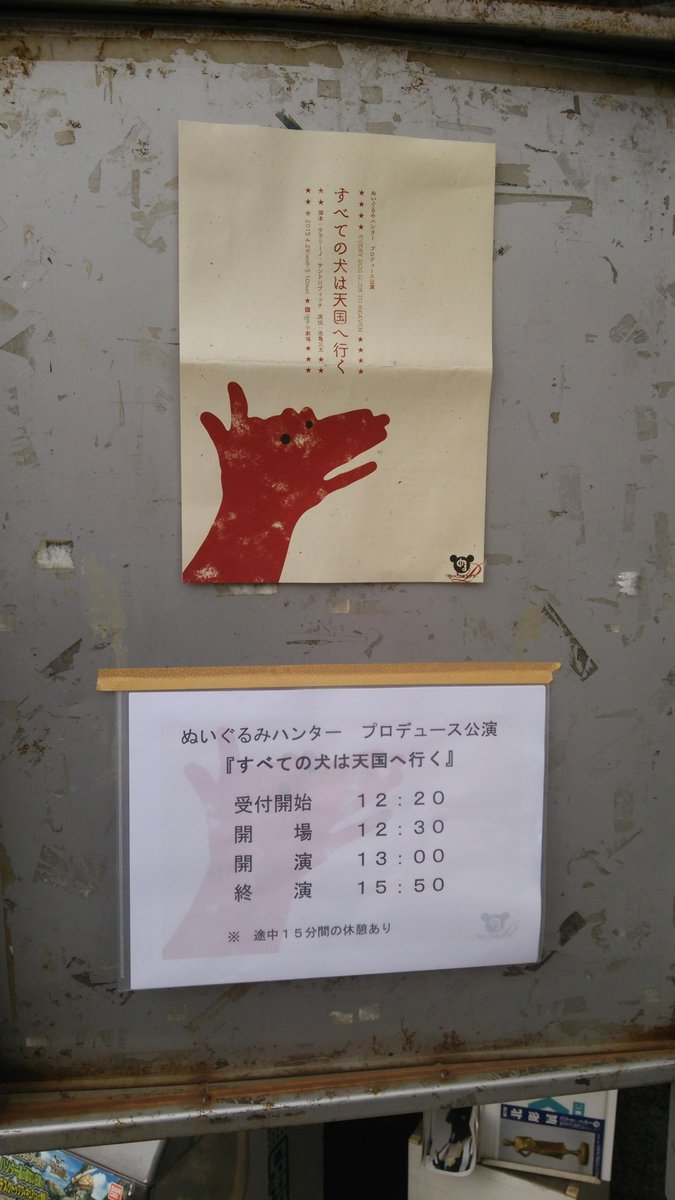 ぬいぐるみハンター プロデュース公演
★★★★★ EVERY DOG GOES TO HEAVEN ★★★★★
すべての犬は天国へ行く
脚本 ケラリーノ・サンドロヴィッチ 演出 池亀三太
王子小劇場
ぬいぐるみハンター プロデュース公演
『すべての犬は天国へ行く』
受付開始 12:20
開 場 12:30
開 演 13:00
終 演 15:50
※ 途中15分間の休憩あり
北彫展
BANDAI